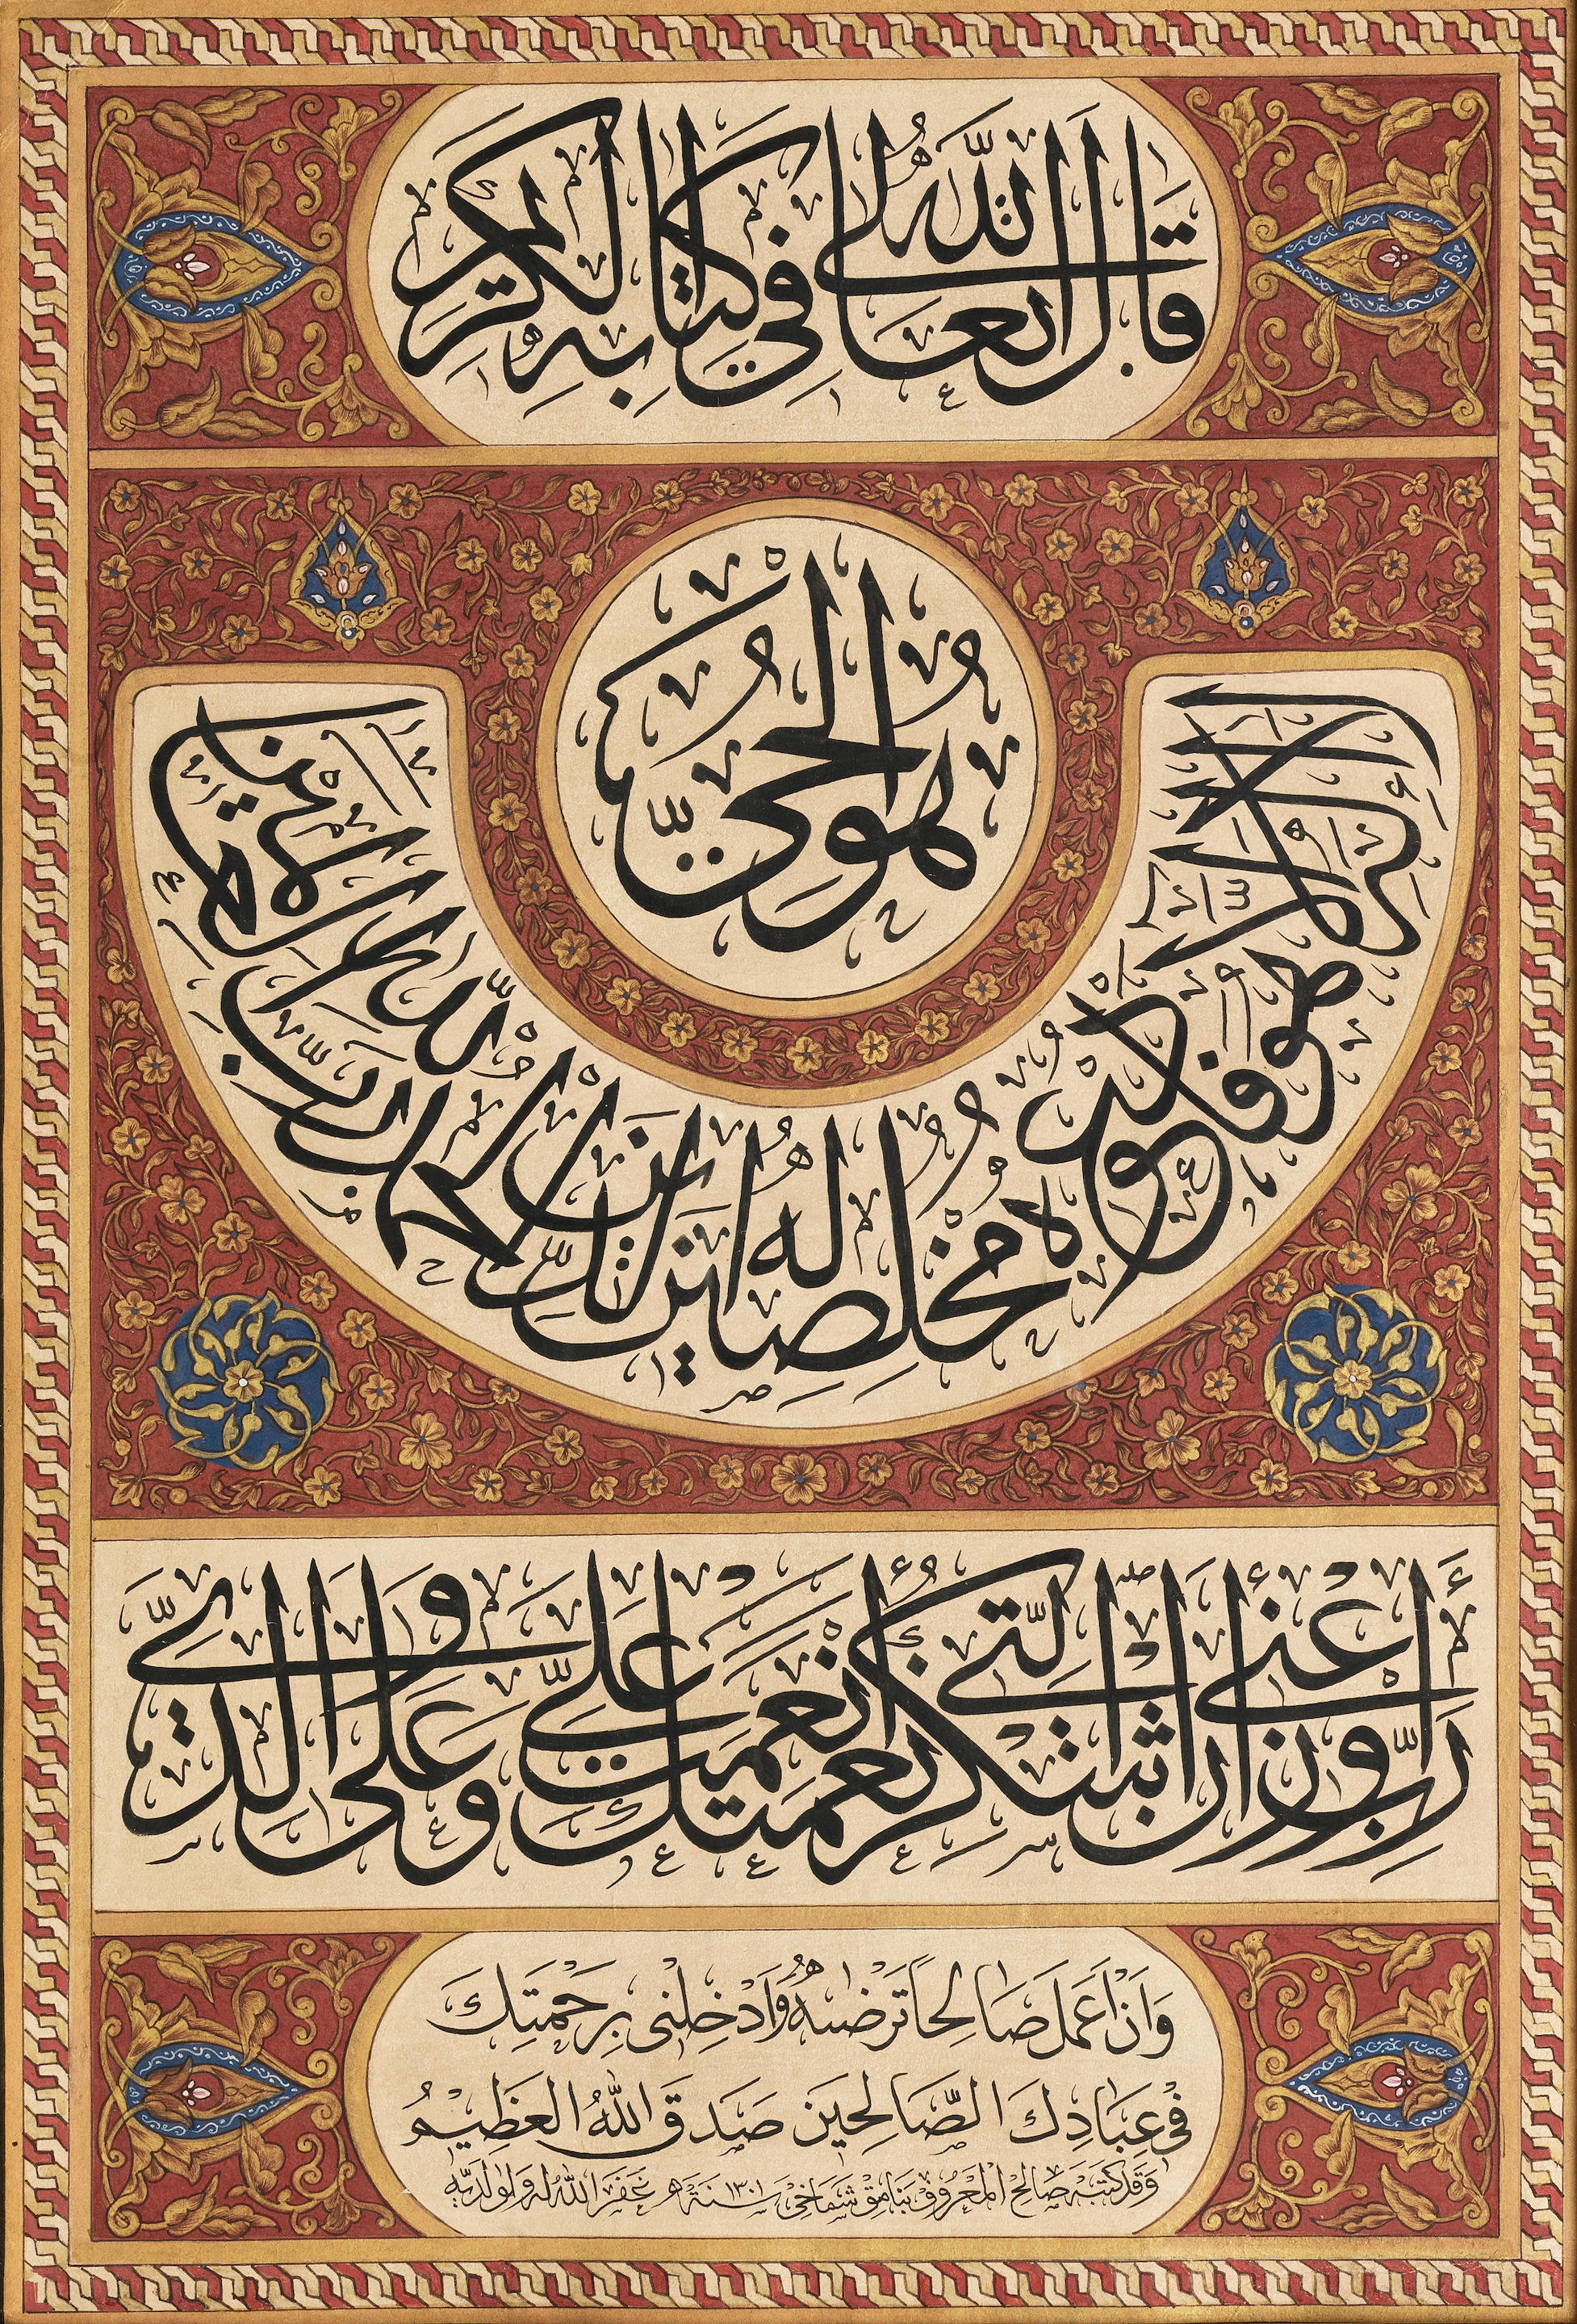 قال الله تعالى في كتابه الكريم
هو الحي
لا اله الا هو فادعوه مخلصين له الدين الحمد لله رب العالمين
رب أوزعني أن اشكر نعمتك التي أنعمت علي وعلى والدي
وَاَنْ اَعْمَلَ صَالِحًا تَرْضٰيهُ وَاَدْخِلْنى بِرَحْمَتِكَ
فى عِبَادِكَ الصَّالِحِينَ صَدَقَ اللهُ العَظِيمُ
وَقَد كَتَبَهُ صَالِح المَعْرُوف بنامق سنة ١٣٠١ غَفَرَ اللهُ لَهُ وَلِوَالِدَيْهِ